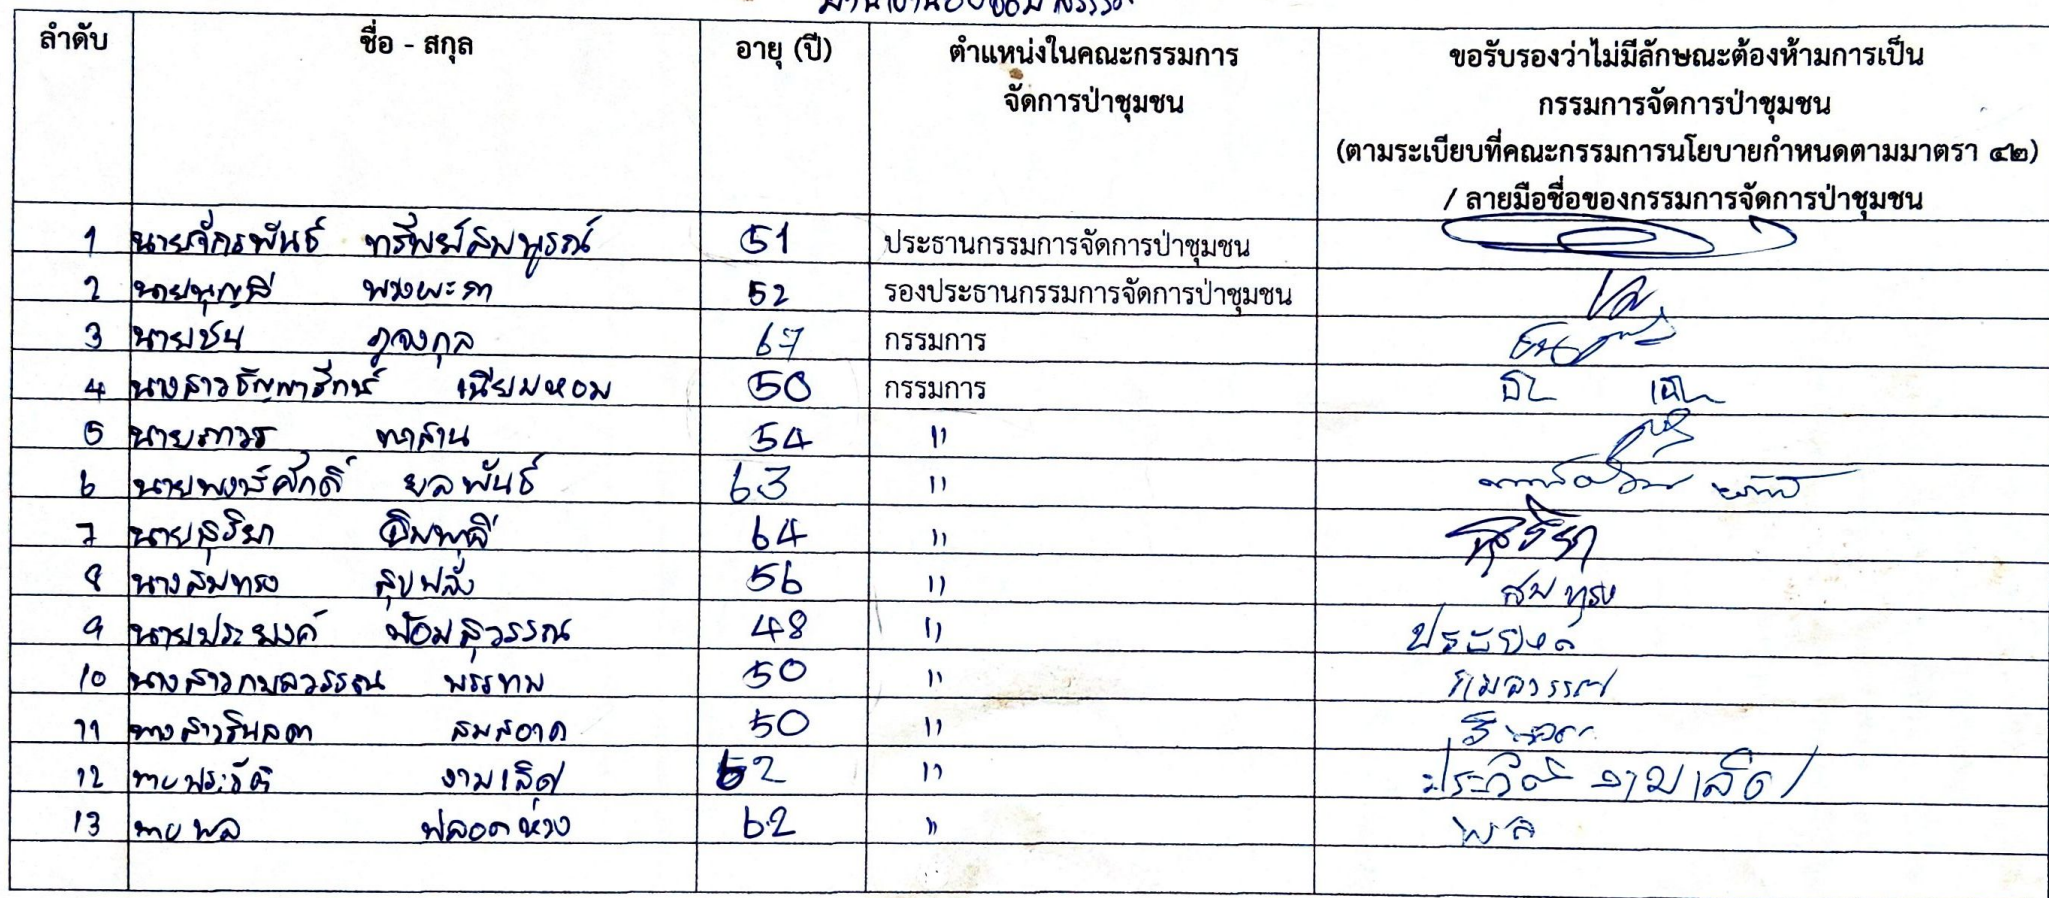 ลำดับ ชื่อ - สกุล อายุ (ปี) ตำแหน่งในคณะกรรมการ ขอรับรองว่าไม่มีลักษณะต้องห้ามการเป็น
จัดการป่าชุมชน กรรมการจัดการป่าชุมชน
(ตามระเบียบที่คณะกรรมการนโยบายกำหนดตามมาตรา ๔๒)
/ ลายมือชื่อของกรรมการจัดการป่าชุมชน
1 นายจักรพันธ์ ทรัพย์สมบูรณ์ 51 ประธานกรรมการจัดการป่าชุมชน
2 นายบุญมี 52 รองประธานกรรมการจัดการป่าชุมชน
3 นายชัน ภูจงกุล 67 กรรมการ
4 นางสาวธัญญารักษ์ เนียมหอม 50 กรรมการ
5 นายถาวร ทาสาน 54 "
6 นายพงษ์ศักดิ์ ยลพันธ์ 63 "
7 นายสุริยา 64 " สุริยา
8 นางสมทรง สุขปลั่ง 56 " สมทรง
9 นายประยงค์ ป้อมสุวรรณ 48 " ประยงค์
10 นางสาวกมลวรรณ 50 " กมลวรรณ
11 นางสาวรินลดา สมสอาด 50 "
12 นายประวัติ งามเลิศ 62 " ประวัติ งามเลิศ
13 นายพล ปลอดห่วง 62 " พล